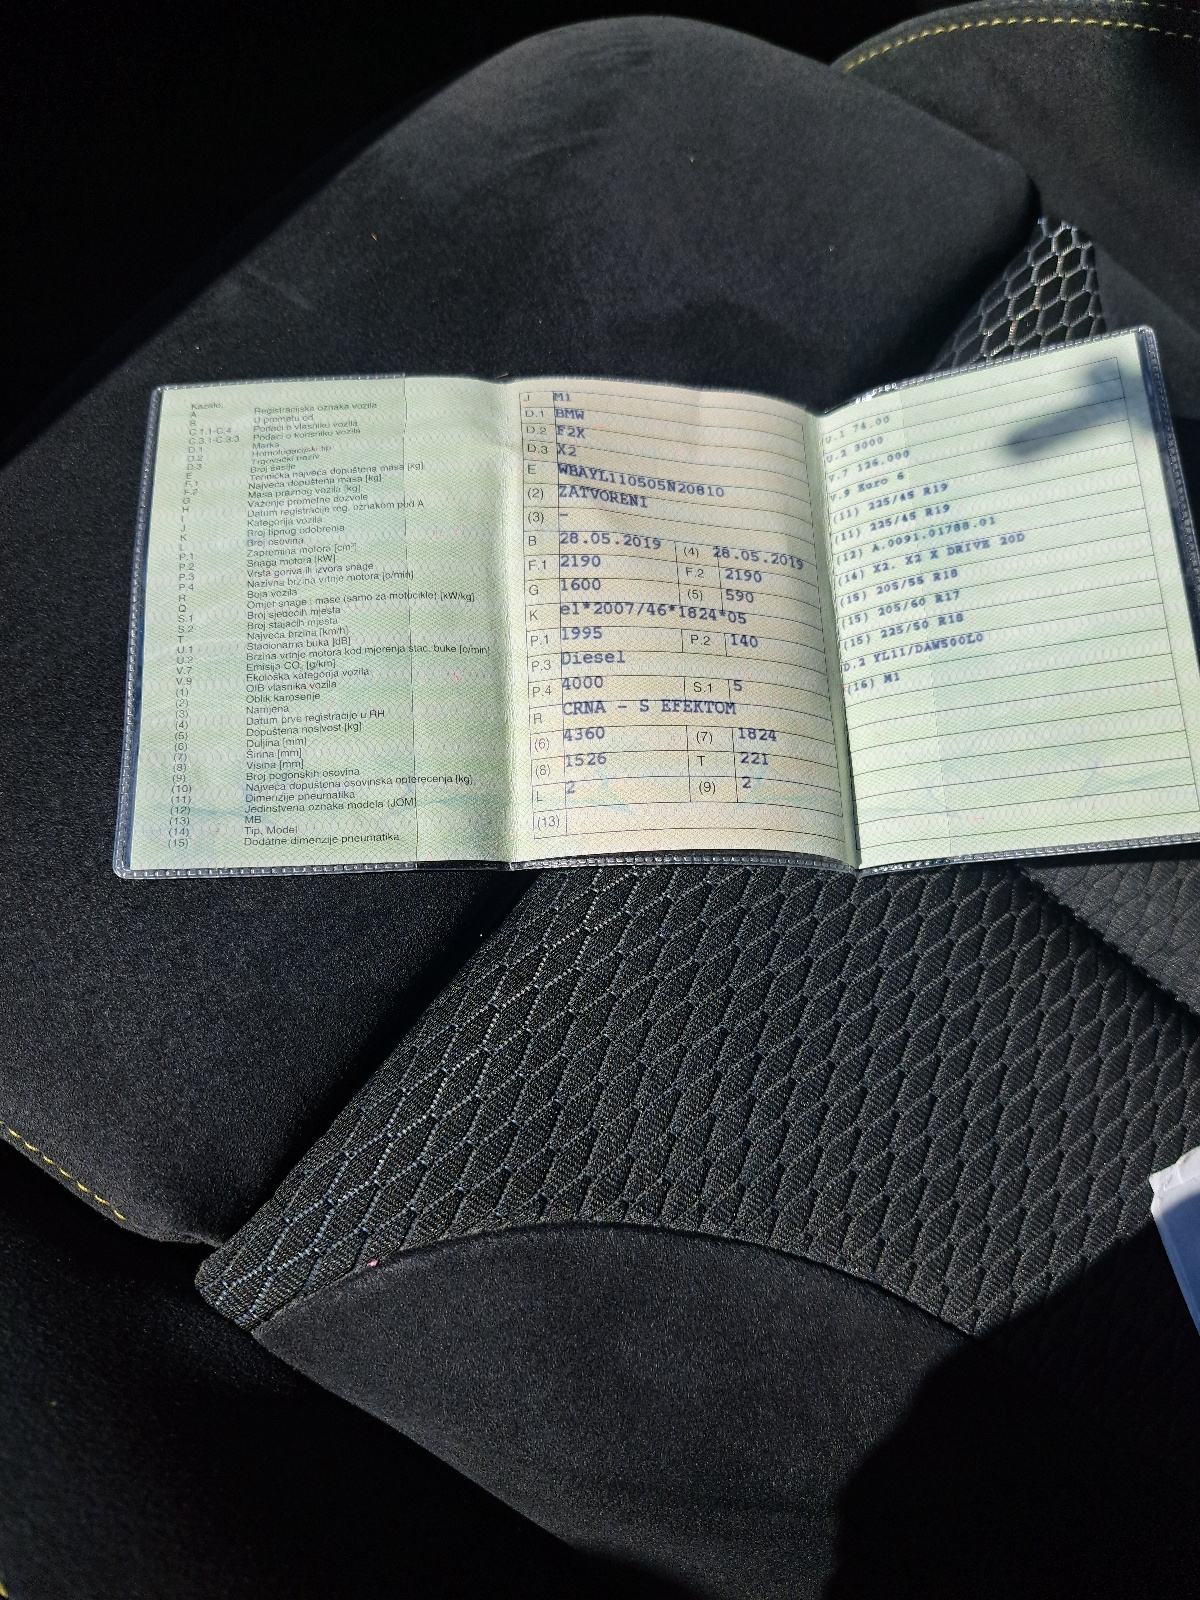 Kazalo:
A Registracijska oznaka vozila
B U prometu od
C.1.1-C.4 Podaci o vlasniku vozila
C.3.1-C.3.3 Podaci o korisniku vozila
D.1 Marka
D.2 Homologacijski tip
D.3 Trgovački naziv
E Broj šasije
F.1 Tehnička najveća dopuštena masa [kg]
F.2 Najveća dopuštena masa [kg]
G Masa praznog vozila [kg]
H Važenje prometne dozvole
I Datum registracije reg. oznakom pod A
J Kategorija vozila
K Broj tipnog odobrenja
L Broj osovina
P.1 Zapremina motora [cm³]
P.2 Snaga motora [kW]
P.3 Vrsta goriva ili izvora snage
P.4 Nazivna brzina vrtnje motora [o/min]
R Boja vozila
Q Omjer snage i mase (samo za motocikle) [kW/kg]
S.1 Broj sjedećih mjesta
S.2 Broj stajaćih mjesta
T Najveća brzina [km/h]
U.1 Stacionarna buka [dB]
U.2 Brzina vrtnje motora kod mjerenja stac. buke [o/min]
V.7 Emisija CO₂ [g/km]
V.9 Ekološka kategorija vozila
(1) OIB vlasnika vozila
(2) Oblik karoserije
(3) Namjena
(4) Datum prve registracije u RH
(5) Dopuštena nosivost [kg]
(6) Duljina [mm]
(7) Širina [mm]
(8) Visina [mm]
(9) Broj pogonskih osovina
(10) Najveća dopuštena osovinska opterećenja [kg]
(11) Dimenzije pneumatika
(12) Jedinstvena oznaka modela (JOM)
(13) MB
(14) Tip, Model
(15) Dodatne dimenzije pneumatika
J M1
D.1 BMW
D.2 F2X
D.3 X2
E WBAYL110505N20810
(2) ZATVORENI
(3) -
B 28.05.2019 (4) 28.05.2019
F.1 2190 F.2 2190
G 1600 (5) 590
K e1*2007/46*1824*05
P.1 1995 P.2 140
P.3 Diesel
P.4 4000 S.1 5
R CRNA - S EFEKTOM
(6) 4360 (7) 1824
(8) 1526 T 221
L 2 (9) 2
(13)
U.1 74.00
U.2 3000
V.7 126.000
V.9 Euro 6
(11) 225/45 R19
(11) 225/45 R19
(12) A.0091.01788.01
(14) X2. X2 X DRIVE 20D
(15) 205/55 R18
(15) 205/60 R17
(15) 225/50 R18
D.2 YL11/DAW500L0
(16) M1